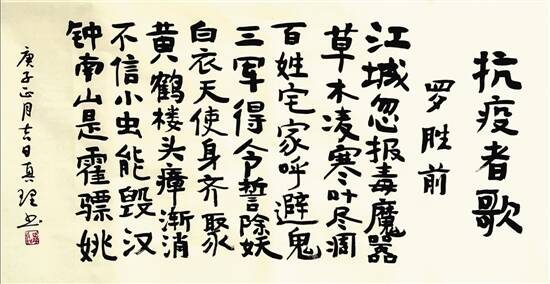 抗疫者歌
罗胜前
江城忽报毒魔嚣
草木凌寒叶尽凋
百姓宅家呼避鬼
三军得令誓除妖
白衣天使身齐聚
黄鹤楼头瘴渐消
不信小虫能毁汉
钟南山是霍骠姚
庚子正月吉日真理书